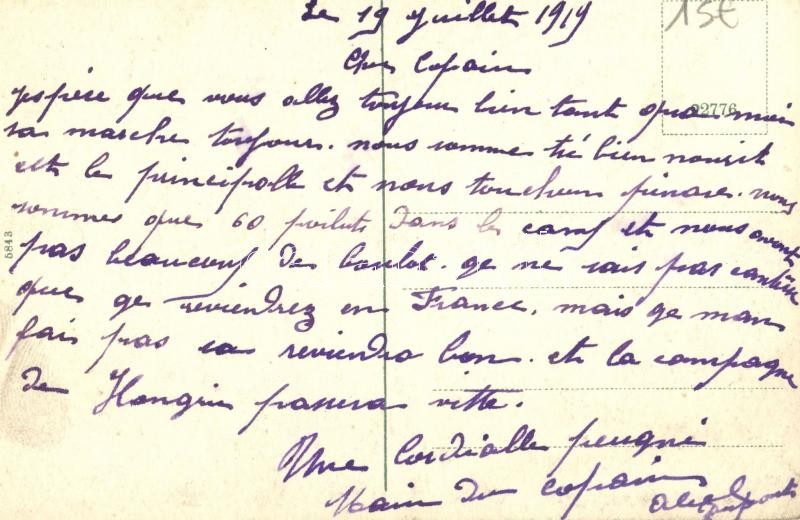 Le 19 Juillet 1919
15€
Cher Copain
22776
jespère que vous allez toujour bien tant qua moi
sa marche toujours. nous somme tré bien nourit
est le principalle et nous touchon pinare. nous
sommes que 60 poiluts dans le camp et nous avont
pas beaucoup de boulot. ge ne sais pas
que ge reviendrez en France. mais ge man
fais pas sa reviendra bon. et la compagne
de Hongrie passera vitte.
5843
Une Cordialle peugné
Main du copain